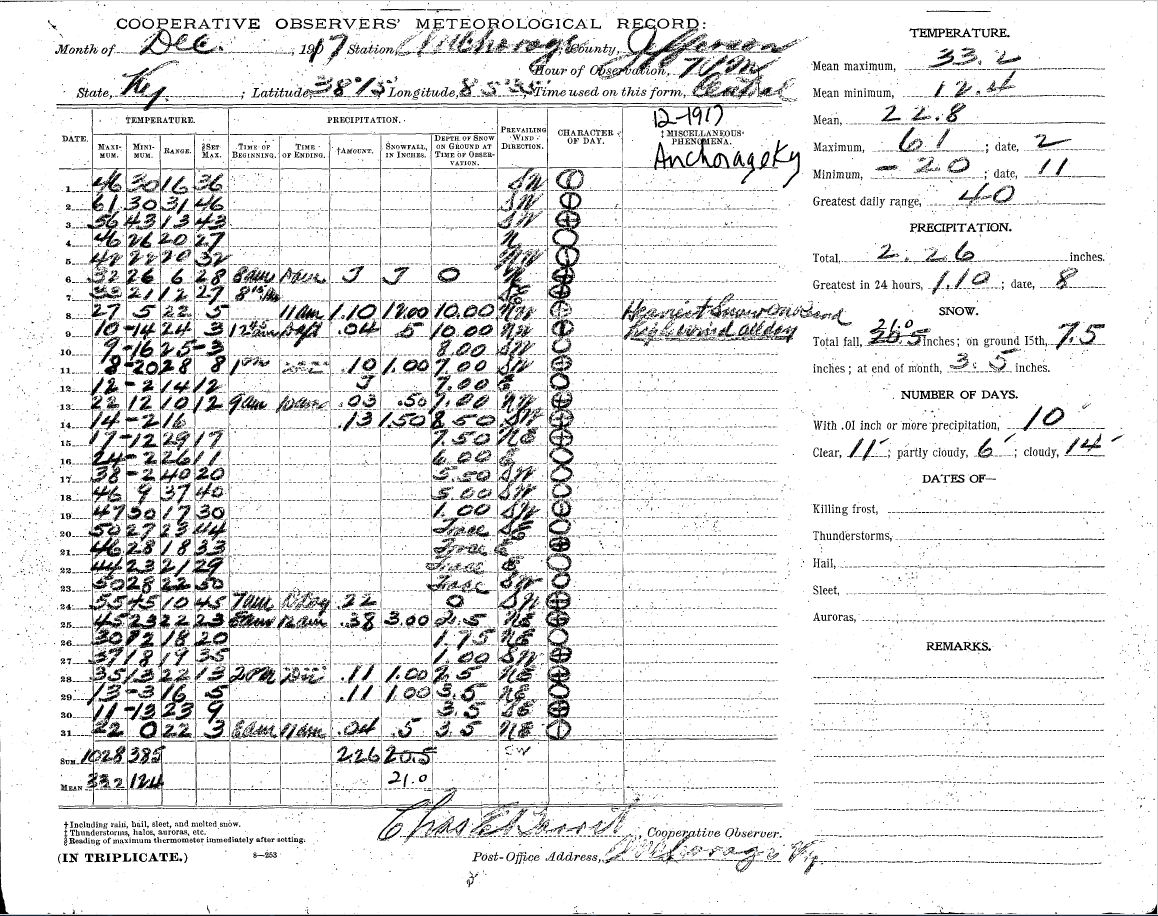 COOPERATIVE OBSERVERS' METEOROLOGICAL RECORD:
Month of Dec. , 1917 Station, Anchorage; County, Jefferson
Hour of Observation, 7 PM
State, Ky. ; Latitude, 38°15'; Longitude, 85°35'; Time used on this form, Central
TEMPERATURE. PRECIPITATION. 12-1917
DATE. MAXIMUM. MINIMUM. RANGE. §SET MAX. TIME OF BEGINNING. TIME OF ENDING. †AMOUNT. SNOWFALL, IN INCHES. DEPTH OF SNOW ON GROUND AT TIME OF OBSERVATION. PREVAILING WIND DIRECTION. CHARACTER OF DAY. ‡MISCELLANEOUS PHENOMENA.
Anchorage Ky
1 46 30 16 36 SW
2 61 30 31 46 SW
3 56 43 13 43 SW
4 46 26 20 27 N
5 42 22 20 32
6 32 26 6 28 8am T T 0
7 33 21 12 27 8
8 27 5 22 5 11am 1.10 12.00 10.00 NW Heaviest Snow on
9 10 -14 24 3 .04 .5 10.00 NW high wind all day
10 9 -16 25 -3 8.00 SW
11 8 -20 28 8 1pm .10 1.00 7.00 SW
12 12 -2 14 12 T 7.00 E
13 22 12 10 12 9am .03 .50 7.00 NW
14 14 -2 16 .13 1.50 8.50 SW
15 17 -12 29 17 7.50 NE
16 24 -2 26 11 6.00 E
17 38 -2 40 20 5.50 SW
18 46 9 37 40 5.00 SW
19 47 30 17 30 1.00 SW
20 50 27 23 44 Trace
21 46 28 18 33 Trace E
22 44 23 21 29 Trace E
23 50 28 22 50 Trace SW
24 55 45 10 45 7am .22 0 SW
25 45 23 22 23 .38 3.00 2.5 NE
26 30 12 18 20 1.75 NE
27 37 18 19 35 1.00 SW
28 35 13 22 13 2PM .11 1.00 2.5 NE
29 13 -3 16 5 .11 1.00 3.5 NE
30 11 -13 23 9 3.5
31 22 0 22 3 8am 11am .04 .5 3.5 NE
SUM. 1028 385 226 20.5 SW
MEAN 332 124 21.0
† Including rain, hail, sleet, and melted snow.
‡ Thunderstorms, halos, auroras, etc.
§ Reading of maximum thermometer immediately after setting.
Chas , Cooperative Observer.
(IN TRIPLICATE.) 8—253 Post-Office Address, Anchorage Ky.
TEMPERATURE.
Mean maximum, 33.2
Mean minimum, 12.4
Mean, 22.8
Maximum, 61 ; date, 2
Minimum, -20 ; date, 11
Greatest daily range, 40
PRECIPITATION.
Total, 2.26 inches.
Greatest in 24 hours, 1.10 ; date, 8
SNOW.
21.0
Total fall, 20.5 inches; on ground 15th, 7.5
inches; at end of month, 3.5 inches.
NUMBER OF DAYS.
With .01 inch or more precipitation, 10
Clear, 11 ; partly cloudy, 6 ; cloudy, 14
DATES OF—
Killing frost,
Thunderstorms,
Hail,
Sleet,
Auroras,
REMARKS.